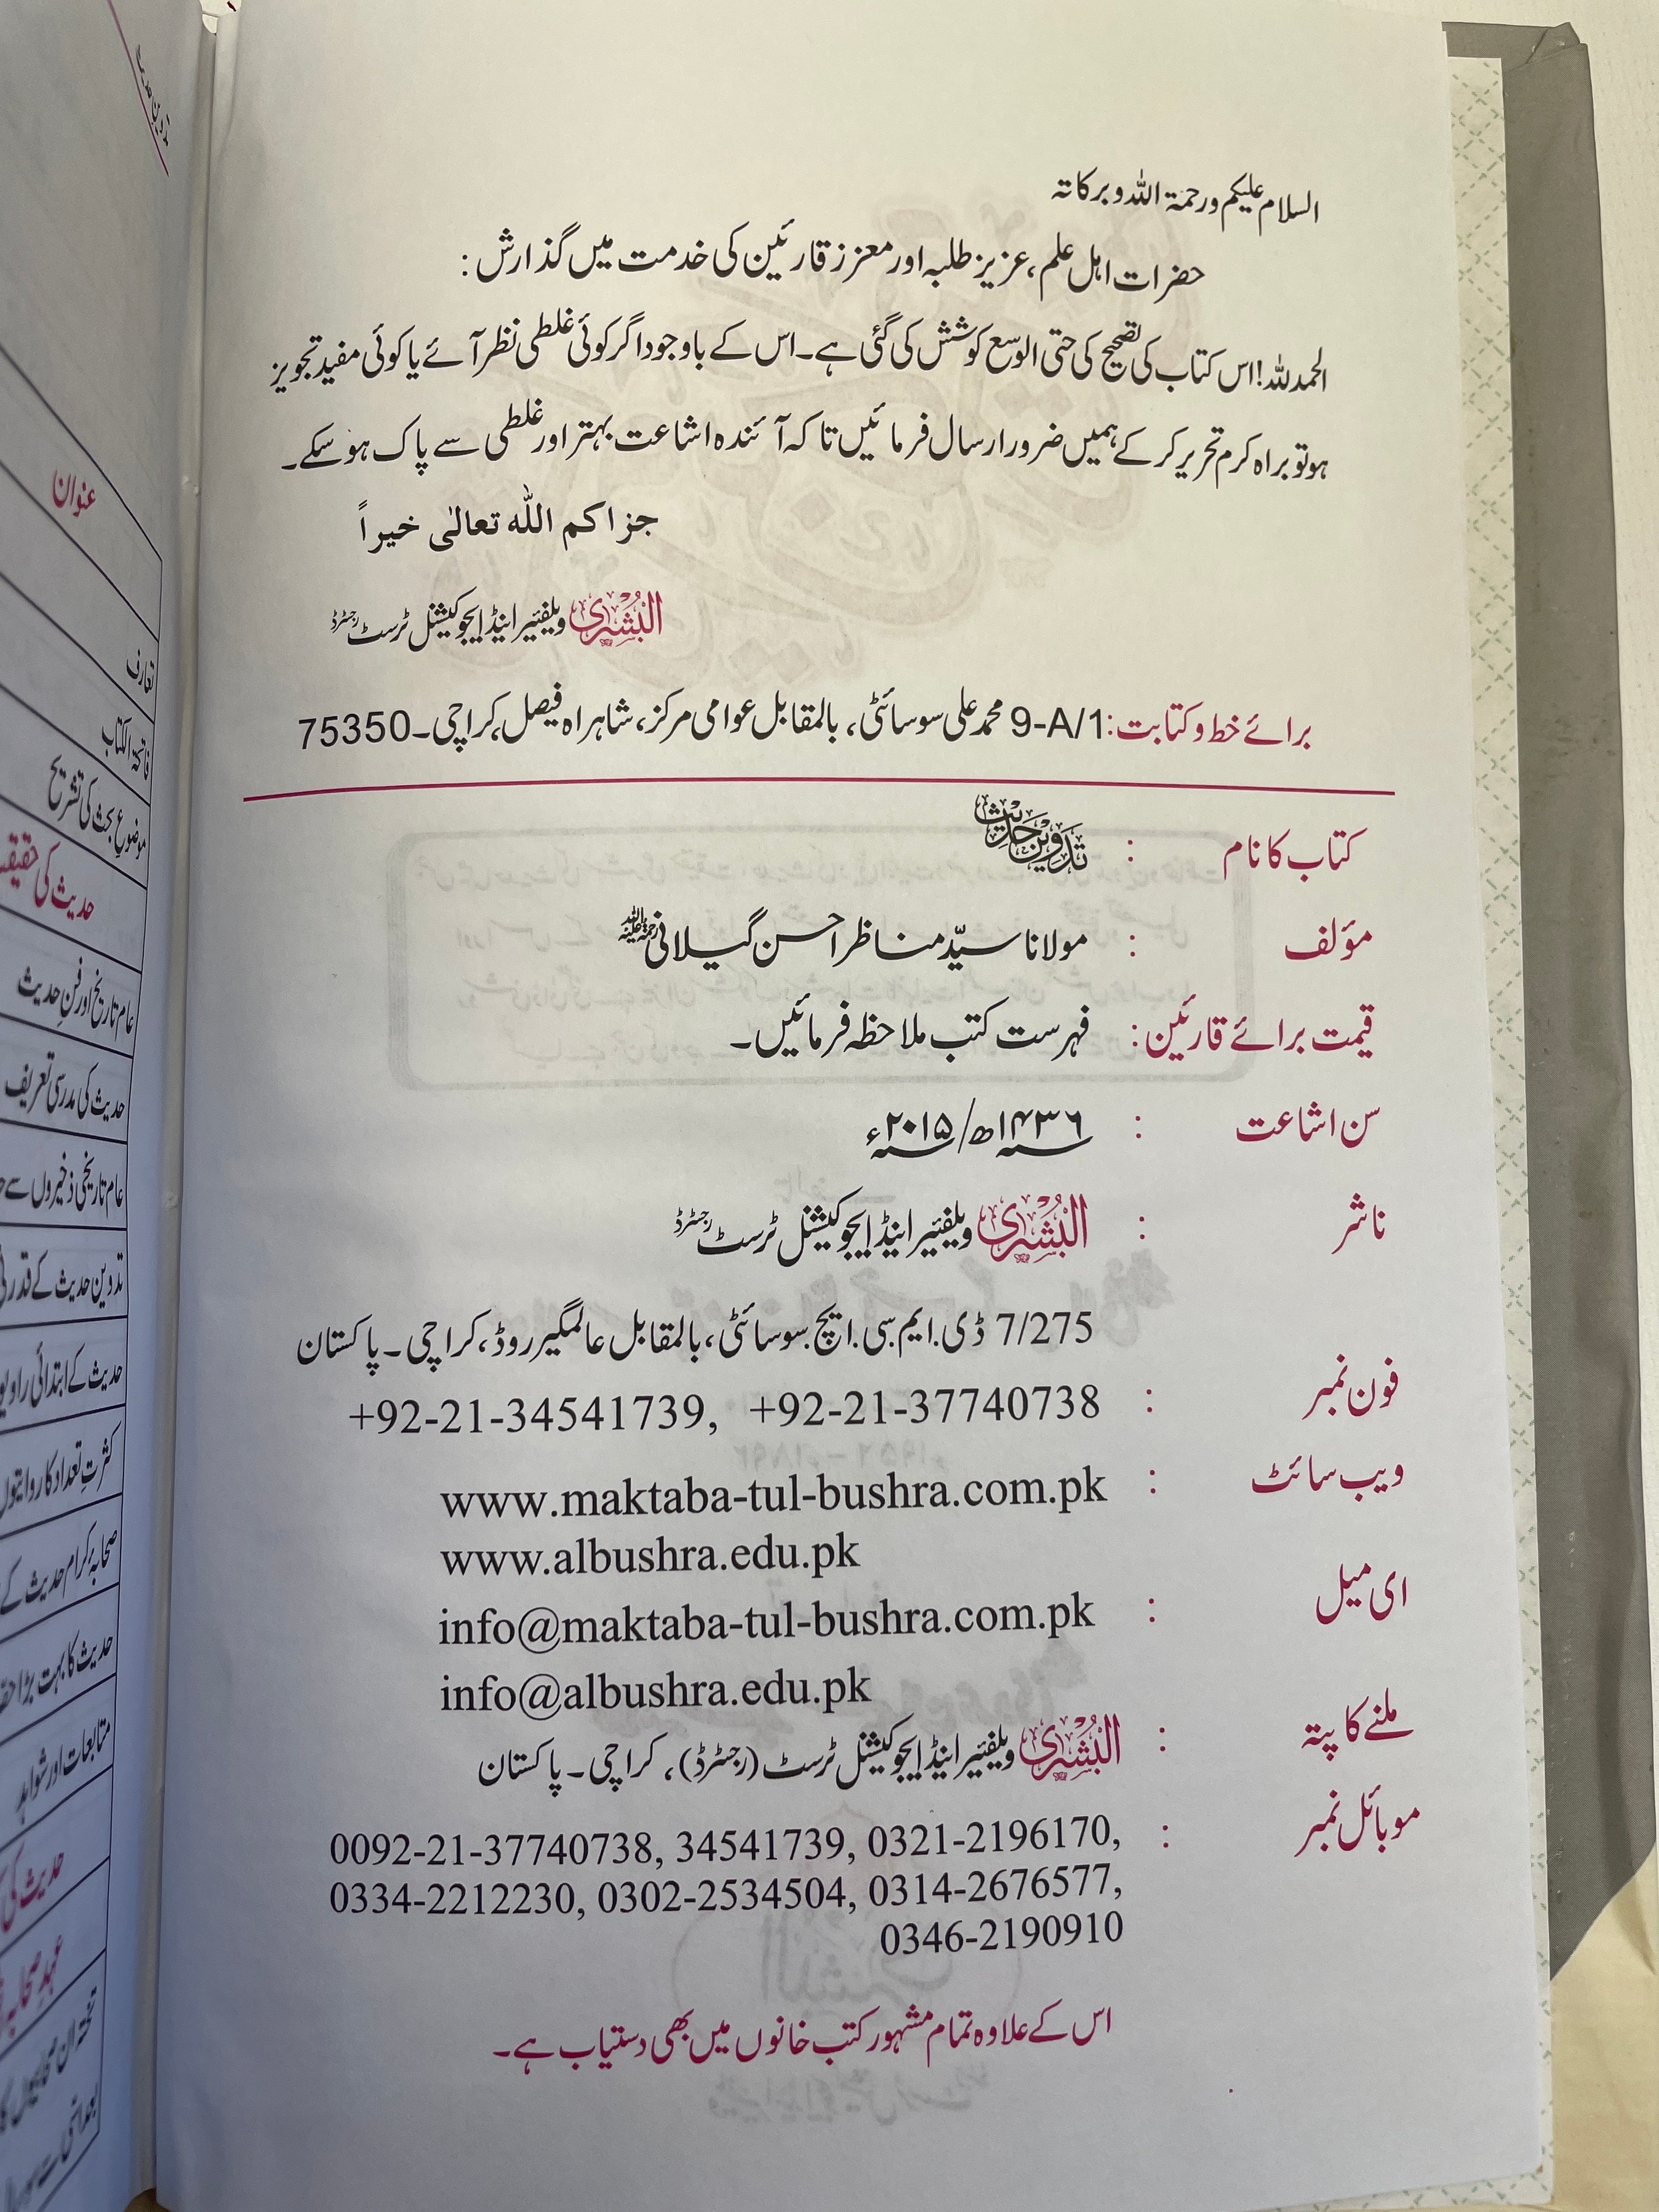 السلام علیکم ورحمۃ اللہ وبرکاتہ
حضرات اہل علم، عزیز طلبہ اور معزز قارئین کی خدمت میں گذارش:
الحمد للہ! اس کتاب کی تصحیح کی حتی الوسع کوشش کی گئی ہے۔ اس کے باوجود اگر کوئی غلطی نظر آئے یا کوئی مفید تجویز
ہو تو براہ کرم تحریر کر کے ہمیں ضرور ارسال فرمائیں تاکہ آئندہ اشاعت بہتر اور غلطی سے پاک ہو سکے۔
جزاکم اللہ تعالٰی خیراً
البُشریٰ ویلفیئر اینڈ ایجوکیشنل ٹرسٹ رجسٹرڈ
برائے خط و کتابت: 9-A/1 محمد علی سوسائٹی، بالمقابل عوامی مرکز، شاہراہ فیصل، کراچی۔ 75350
کتاب کا نام : تدوین حدیث
مؤلف : مولانا سیّد مناظر احسن گیلانی رحمۃ اللہ علیہ
قیمت برائے قارئین: فہرست کتب ملاحظہ فرمائیں۔
سن اشاعت : ۱۴۳۶ھ/ ۲۰۱۵ء
ناشر : البُشریٰ ویلفیئر اینڈ ایجوکیشنل ٹرسٹ رجسٹرڈ
7/275 ڈی.ایم.سی.ایچ.سوسائٹی، بالمقابل عالمگیر روڈ، کراچی۔ پاکستان
فون نمبر : +92-21-34541739, +92-21-37740738
ویب سائٹ : www.maktaba-tul-bushra.com.pk
www.albushra.edu.pk
ای میل : info@maktaba-tul-bushra.com.pk
info@albushra.edu.pk
ملنے کا پتہ : البُشریٰ ویلفیئر اینڈ ایجوکیشنل ٹرسٹ (رجسٹرڈ)، کراچی۔ پاکستان
موبائل نمبر : 0092-21-37740738, 34541739, 0321-2196170,
0334-2212230, 0302-2534504, 0314-2676577,
0346-2190910
اس کے علاوہ تمام مشہور کتب خانوں میں بھی دستیاب ہے۔
عنوان
تعارف
فاتحۃ الکتاب
موضوع بحث کی تشریح
حدیث کی
عام تاریخ اور فن حدیث
حدیث کی مدرسی تعریف
عام تاریخی ذخیروں سے
تدوین حدیث کے
حدیث کے ابتدائی
کثرت تعداد کا
صحابہ کرام حدیث کے
حدیث کا بہت بڑا
متابعات اور شواہد
حدیث کی